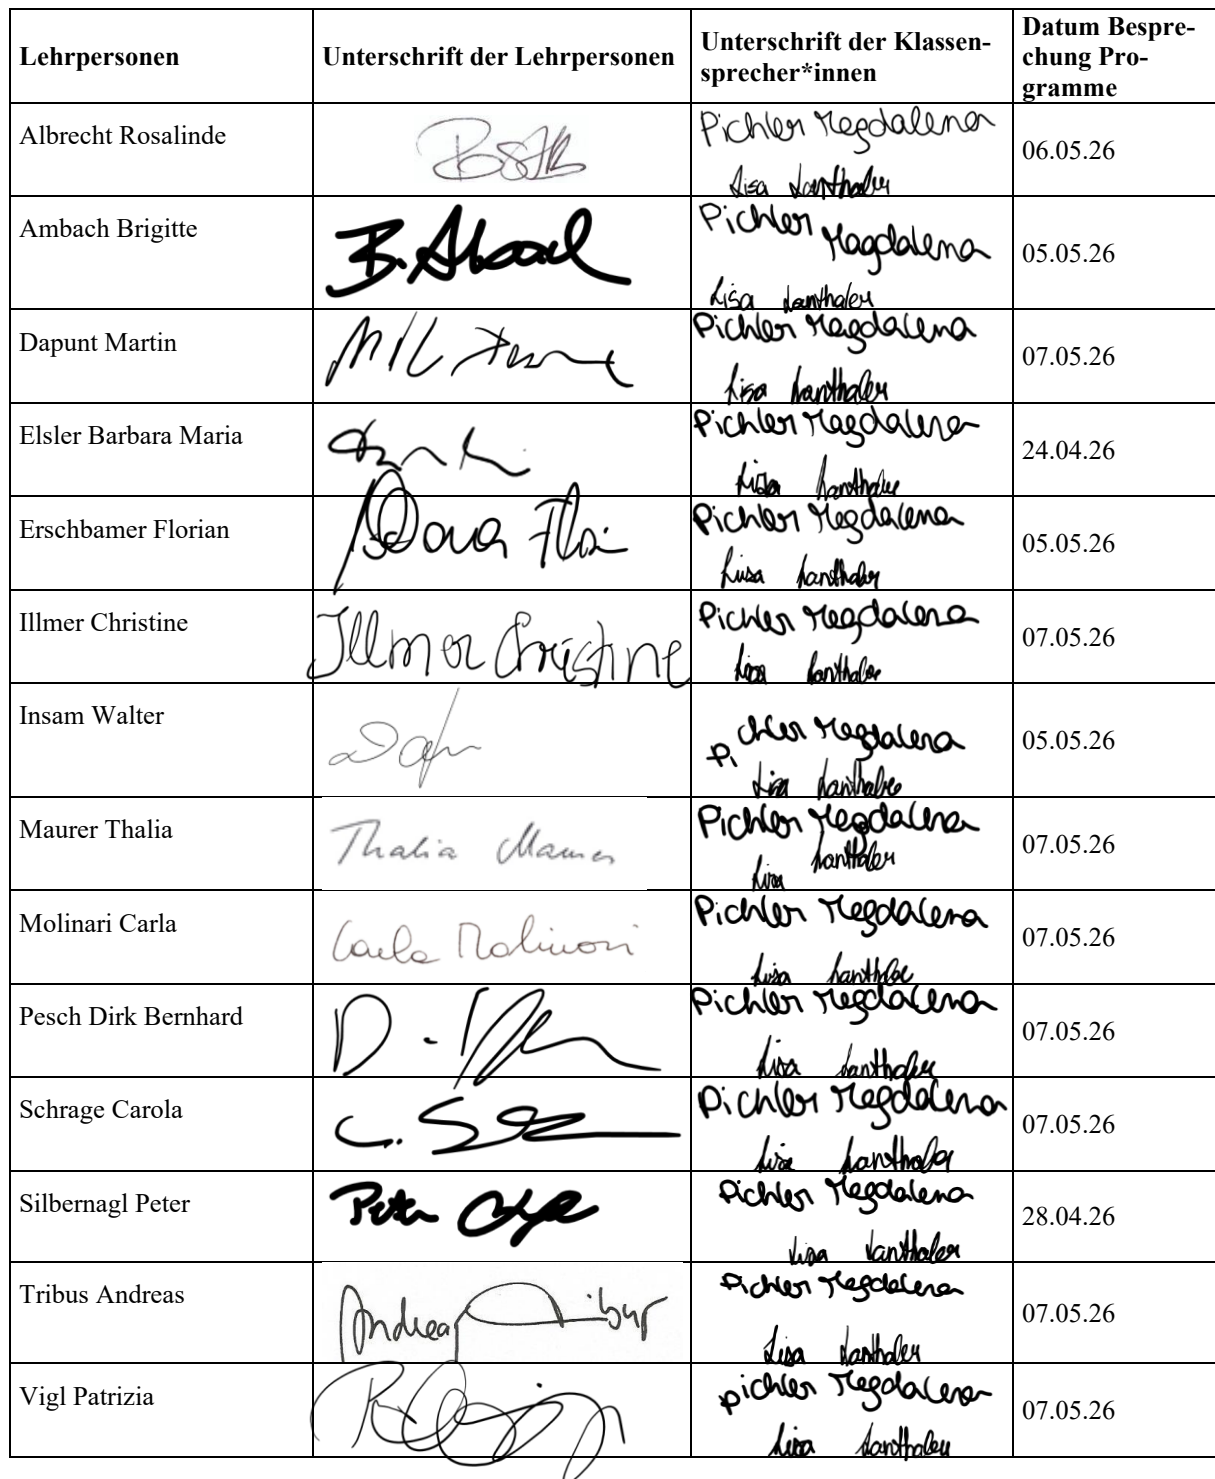 Lehrpersonen
Unterschrift der Lehrpersonen
Unterschrift der Klassen-
sprecher*innen
Datum Bespre-
chung Pro-
gramme
Albrecht Rosalinde
Pichler Magdalena
Lisa Lanthaler
06.05.26
Ambach Brigitte
Pichler Magdalena
Lisa Lanthaler
05.05.26
Dapunt Martin
Pichler Magdalena
Lisa Lanthaler
07.05.26
Elsler Barbara Maria
Pichler Magdalena
Lisa Lanthaler
24.04.26
Erschbamer Florian
Pichler Magdalena
Lisa Lanthaler
05.05.26
Illmer Christine
Illmer Christine
Pichler Magdalena
Lisa Lanthaler
07.05.26
Insam Walter
Pichler Magdalena
Lisa Lanthaler
05.05.26
Maurer Thalia
Thalia Maurer
Pichler Magdalena
Lisa Lanthaler
07.05.26
Molinari Carla
Carla Molinari
Pichler Magdalena
Lisa Lanthaler
07.05.26
Pesch Dirk Bernhard
Pichler Magdalena
Lisa Lanthaler
07.05.26
Schrage Carola
Pichler Magdalena
Lisa Lanthaler
07.05.26
Silbernagl Peter
Peter
Pichler Magdalena
Lisa Lanthaler
28.04.26
Tribus Andreas
Andreas Tribus
Pichler Magdalena
Lisa Lanthaler
07.05.26
Vigl Patrizia
Pichler Magdalena
Lisa Lanthaler
07.05.26